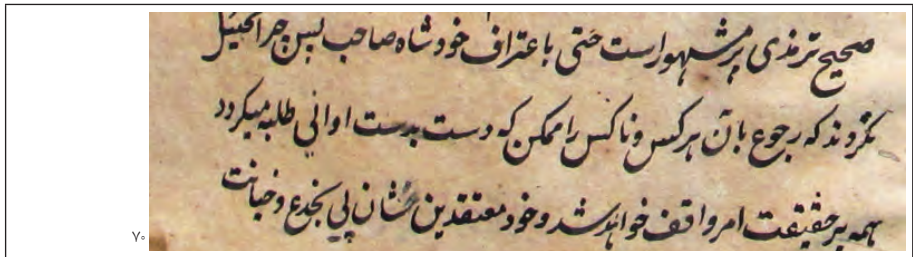 صحیح ترمذی پر مشهور است حتی باعتراف خود شاه صاحب پس چرا تخییل
نکردند که رجوع بآن هر کس و ناکس را ممکن که دست بدست ادانی طلبه میگردد
همه بر حقیقت امر واقف خواهند شد و خود معتقدین شان پی بخدع و خیانت
۷۰